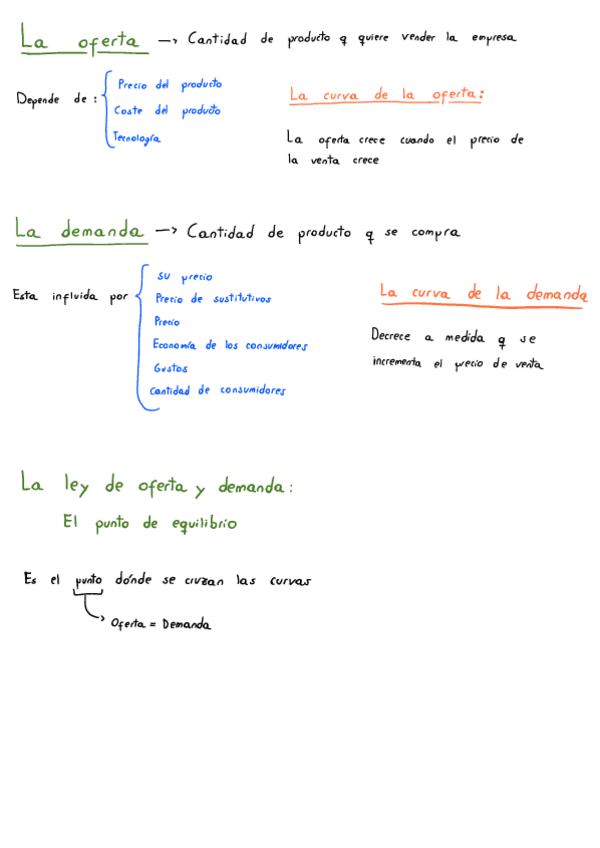 La oferta —> Cantidad de producto q quiere vender la empresa
Depende de:
Precio del producto
Coste del producto
Tecnología
La curva de la oferta:
La oferta crece cuando el precio de
la venta crece
La demanda —> Cantidad de producto q se compra
Esta influida por
su precio
Precio de sustitutivos
Precio
Economía de los consumidores
Gustos
Cantidad de consumidores
La curva de la demanda
Decrece a medida q se
incrementa el precio de venta
La ley de oferta y demanda:
El punto de equilibrio
Es el punto dónde se cruzan las curvas
Oferta = Demanda